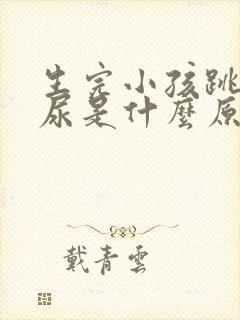 生完小孩跳
尿是什麼原
戴青雲